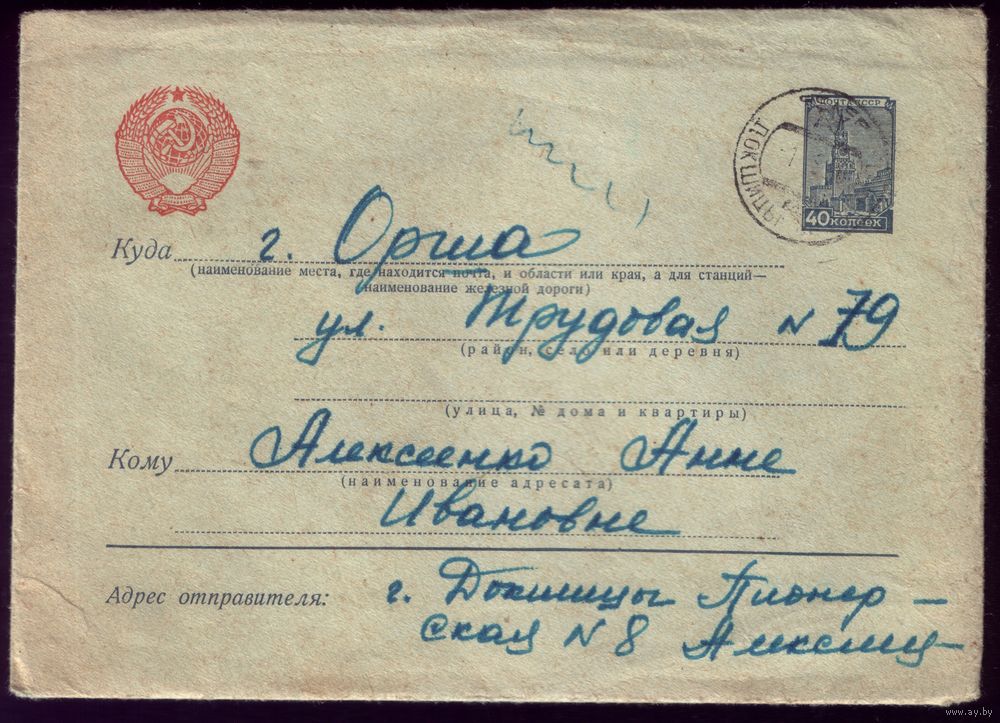 ПОЧТА СССР
ДОКШИЦЫ
40 копеек
Куда г. Орша
(наименование места, где находится почта, и области или края, а для станций—
наименование железной дороги)
ул. Трудовая N 79
(район, село или деревня)
(улица, № дома и квартиры)
Кому Алексеенко Анне
(наименование адресата)
Ивановне
Адрес отправителя: г. Докшицы Пионер—
ская N 8
www.ay.by